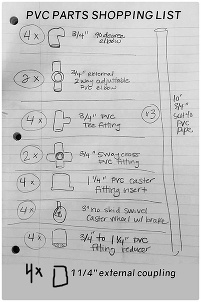 PVC PARTS SHOPPING LIST
4x 3/4" 90 degree
elbow
2x 3/4" external
2 way adjustable
PVC elbow
4x 3/4" PVC
Tee fitting
2x 3/4" 5 way cross
PVC fitting
4x 1 1/4" PVC caster
fitting insert
4x 3" no skid swivel
caster wheel w/ brake
4x 3/4" to 1 1/4" PVC
fitting reducer
x3
10'
3/4"
PVC
pipe
4x 1 1/4" external coupling